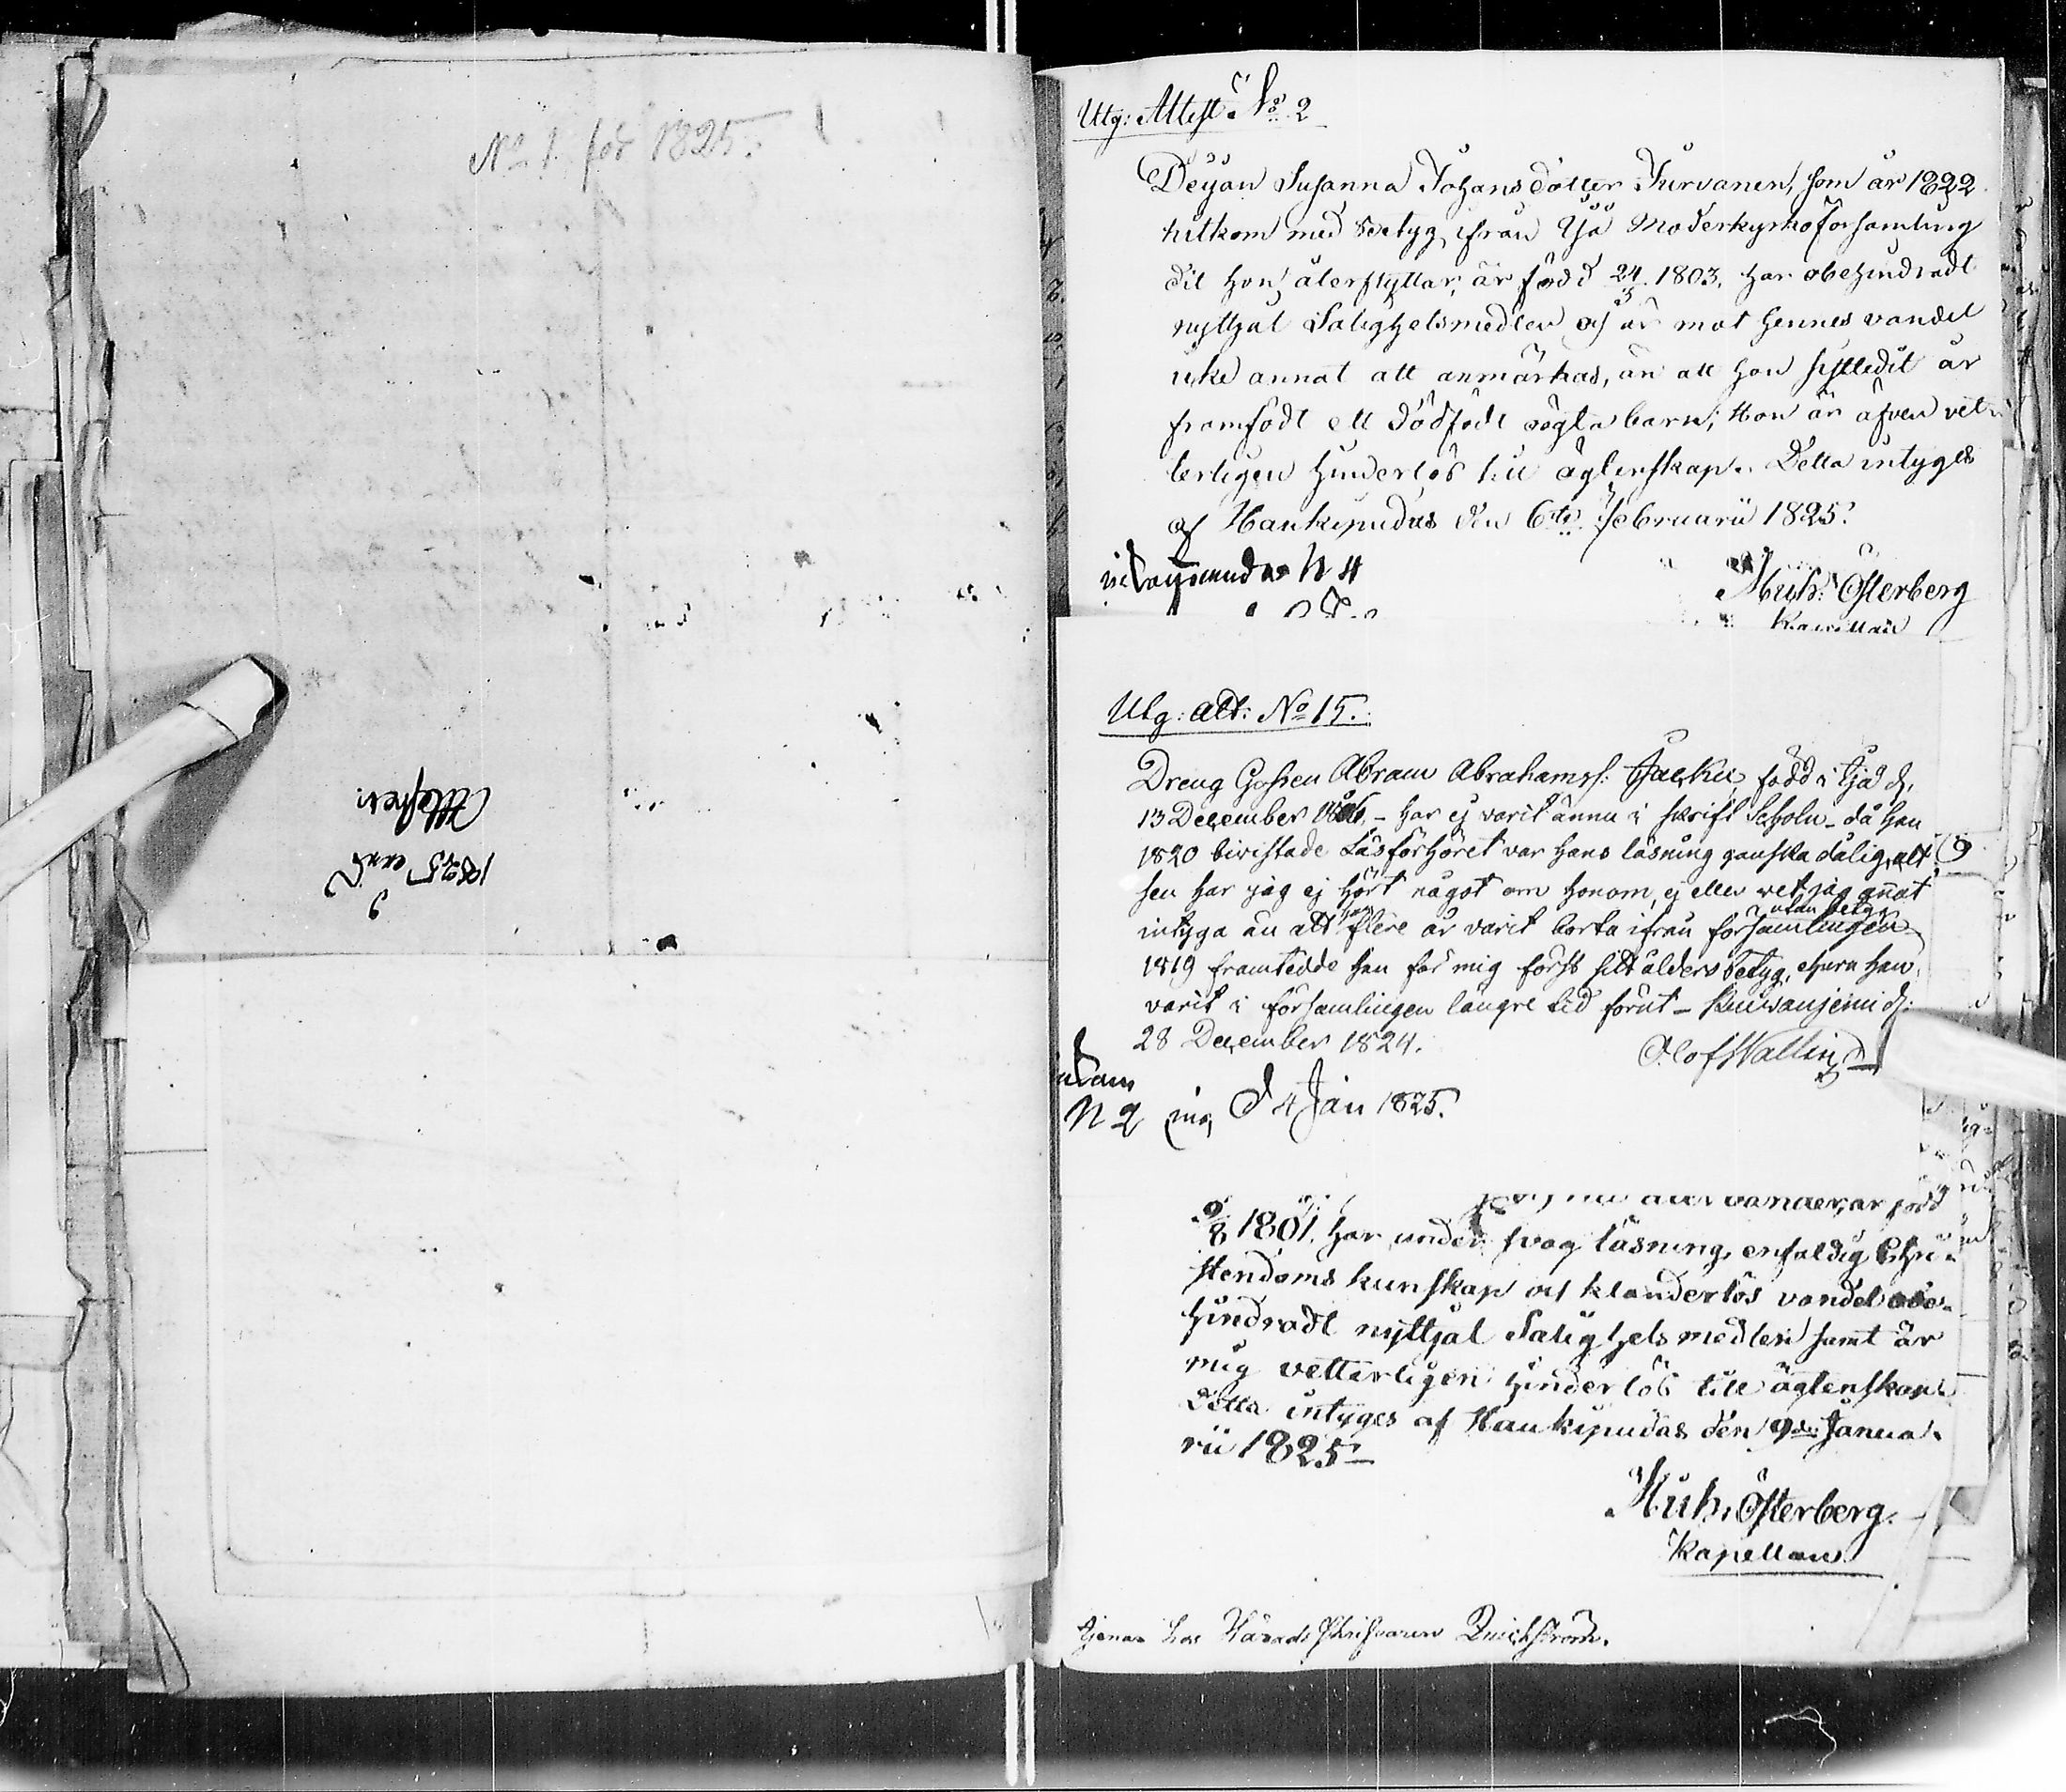 No 1. för 1825.
Attester.
1825 
Utg: Attest. No 2
Deijan Susanna Johansdotter Turvanen, som år 1822
hitkom med betyg ifrån Ijå Moderkyrkoförsamling
dit hon återflyttar, är född 24/3 1803, har obehindradt
nyttjat Salighetsmedlen och är mot hennes vandel
icke annat att anmärkas, än att hon sistledit år
framfödt ett dödfödt oägta barn; Hon är äfven vet-
terligen hinderlös till ägtenskap. Detta intygas
af Haukipudas den 6te Februarii 1825.
N 4
Österberg
Kapellan
Utg: att: No 15.
Dreng Gossen Abram Abrahamss: född i Ijå d.
13 December - har ej varit ännu i skrift Scholn - då han
1820 bivistade Läsförhöret var hans läsning ganska dålig, alt
sen har jag ej hört något om honom, ej eller vet jag annat
utan betyg
intyga än att han flere år varit borta ifrån församlingen
1819 framtedde han för mig först sitt ålders betyg, ehuru han
varit i församlingen längre tid förut - Kuivaniemi d:
28 December 1824.
Olof Wallin
N 2 d 4 Jan 1825.
vander, är född
9/8 1801, har under svag läsning, enfaldig Chri-
stendoms kunskap och klanderlös vandel obe-
hindradt nyttjat Salighets medlen samt är
mig vetterligen hinderlös till ägtenskap.
Detta intyges af Haukipudas den 9de Janua-
rii 1825
Österberg.
Kapellan
tjenar hos Härads Skrifvaren